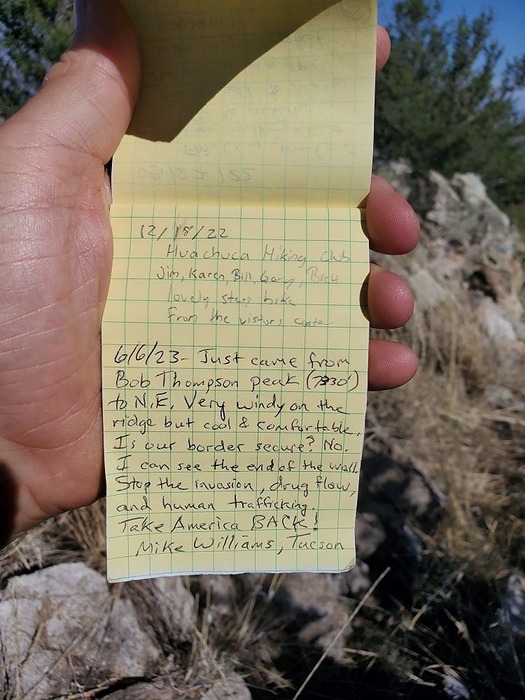 05/27/22
12/18/22
Huachuca Hiking Club
Jim, Karen, Bill, Gary,
lovely steep hike
From the visitors center
6/6/23- Just came from
Bob Thompson peak (7330')
to N.E. Very windy on the
ridge but cool & comfortable.
Is our border secure? No.
I can see the end of the wall.
Stop the invasion, drug flow,
and human trafficking.
Take America BACK!
Mike Williams, Tucson